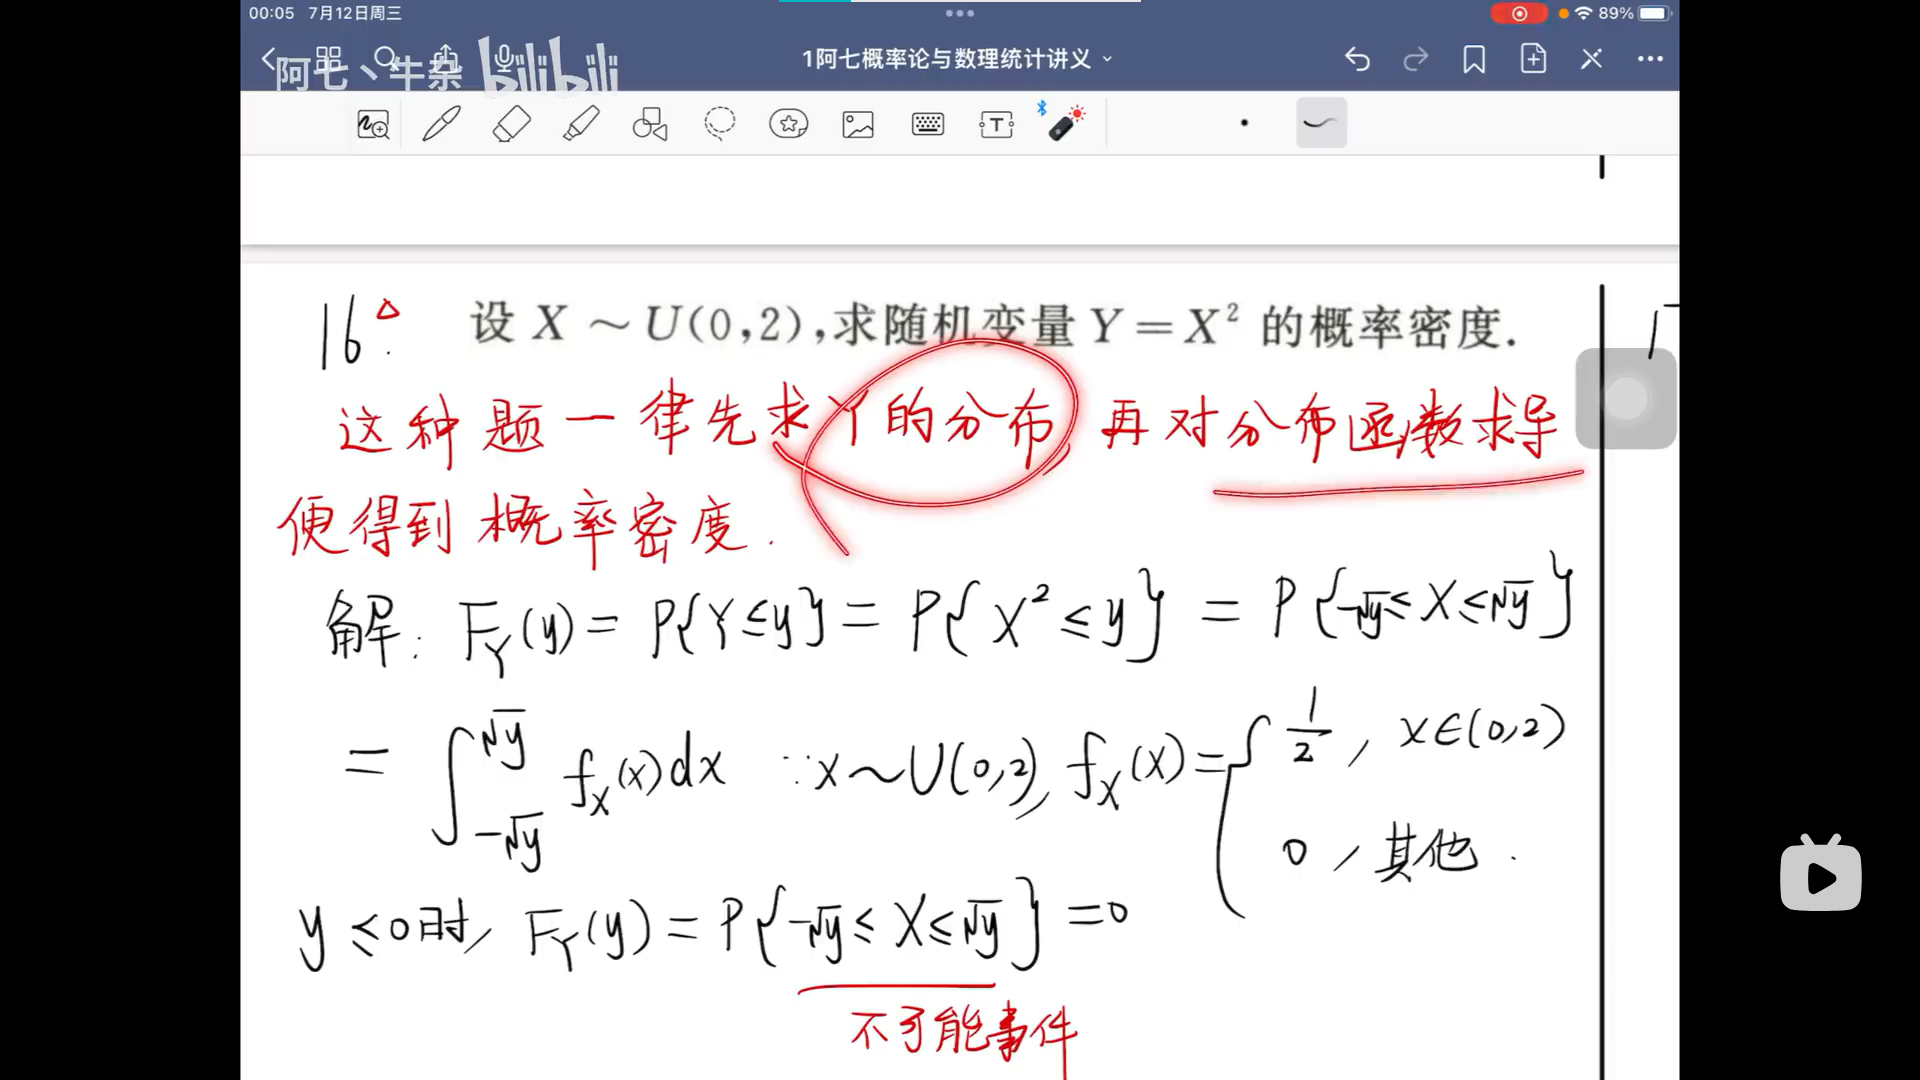 00:05 7月12日周三
89%
阿七丶牛杂 bilibili
1阿七概率论与数理统计讲义
16. 设 X ~ U(0,2),求随机变量 Y = X² 的概率密度.
这种题一律先求Y的分布 再对分布函数求导
便得到概率密度.
解: F_Y(y) = P{Y≤y} = P{X² ≤ y} = P{-√y ≤ X ≤ √y}
= ∫_{-√y}^{√y} f_X(x)dx ∵x~U(0,2), f_X(x) = { 1/2, x∈(0,2)
0, 其他.
y ≤ 0时, F_Y(y) = P{-√y ≤ X ≤ √y} = 0
不可能事件